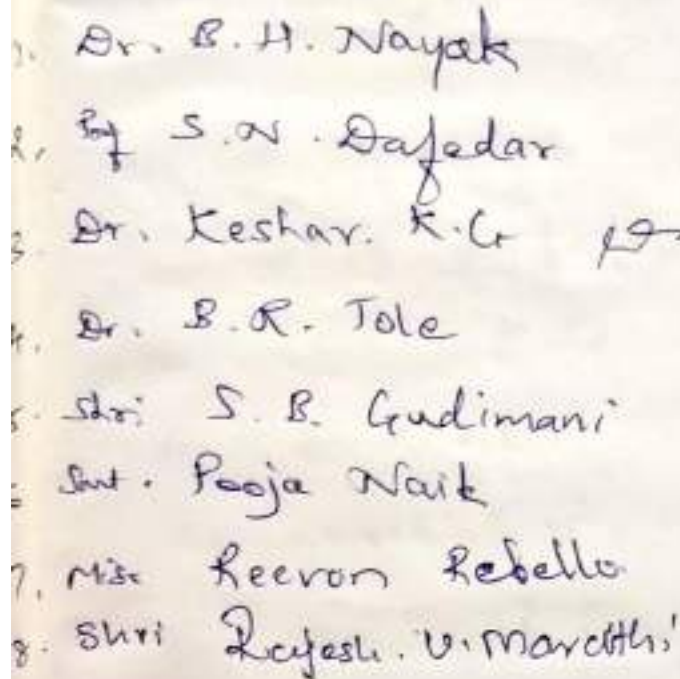 1. Dr. B. H. Nayak
2. Prof S. N. Dafedar
3. Dr. Keshav. K. G
4. Dr. B. R. Tole
5. Shri S. B. Gudimani
6 Smt. Pooja Naik
7. Miss Reevon Rebello
8. Shri Rajesh. V. Marathi